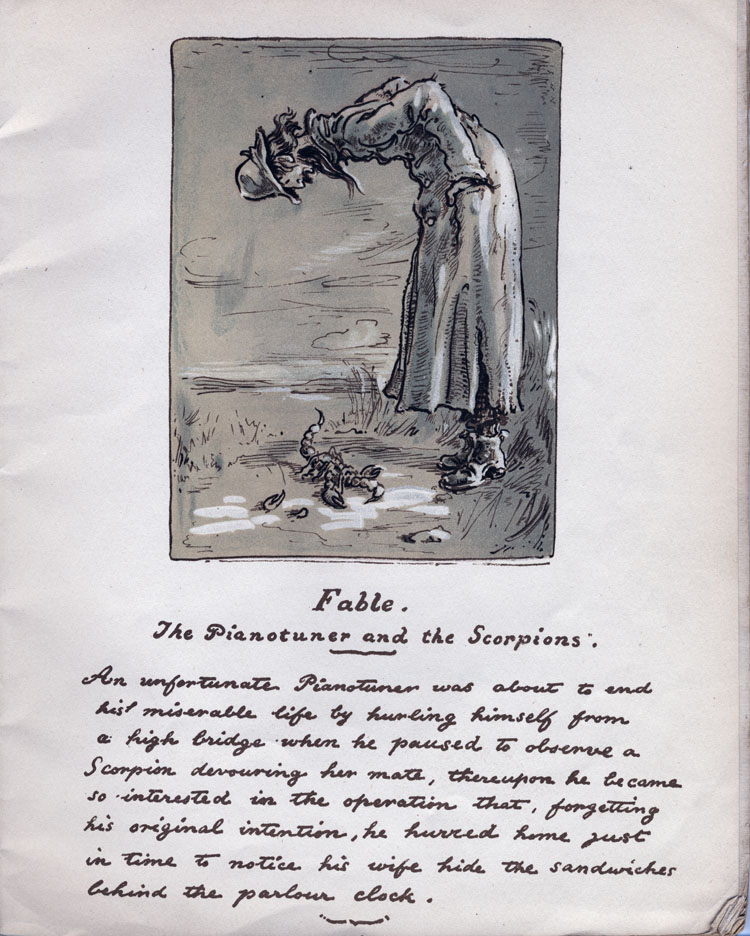 Fable.
The Pianotuner and the Scorpions.
An unfortunate Pianotuner was about to end
his miserable life by hurling himself from
a high bridge when he paused to observe a
Scorpion devouring her mate, thereupon he became
so interested in the operation that, forgetting
his original intention, he hurred home just
in time to notice his wife hide the sandwiches
behind the parlour clock.